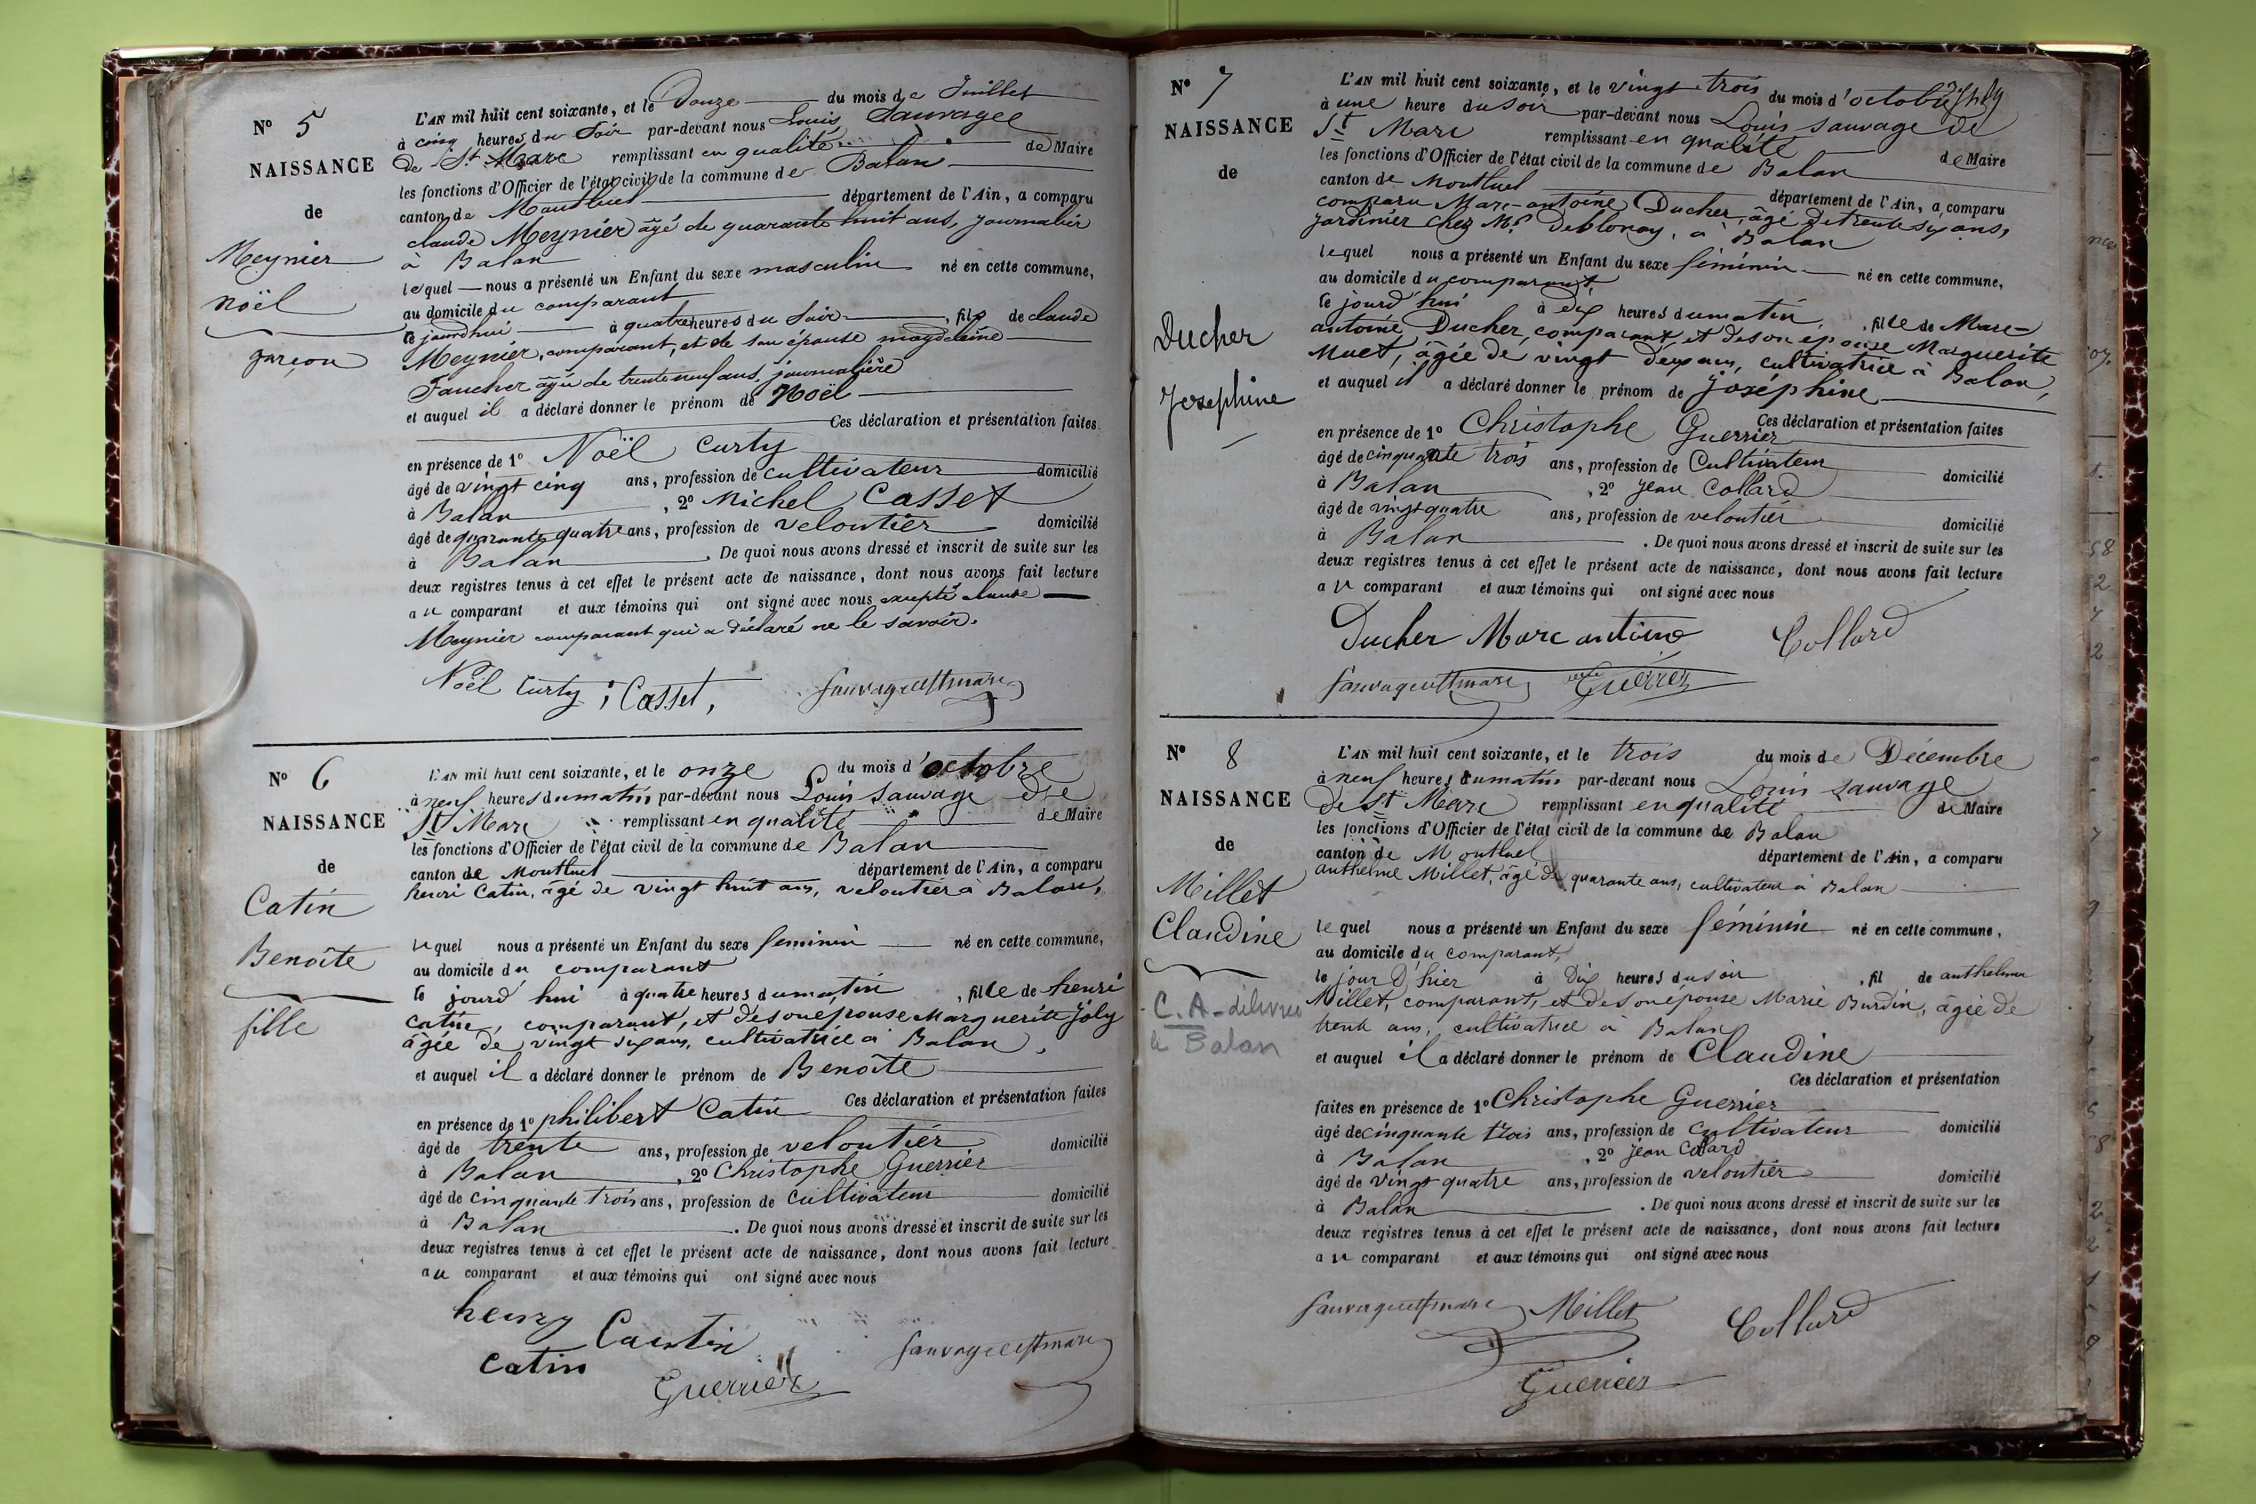 N° 5
NAISSANCE
de
Meynier
Noël
garçon
L'AN mil huit cent soixante, et le Douze du mois de Juillet
à cinq heures du Soir par-devant nous Louis Sauvage
de St Marc remplissant en qualité de Maire
les fonctions d'Officier de l'état civil de la commune de Balan
canton de Montluel département de l'Ain, a comparu
claude Meynier âgé de quarante huit ans, journalier
à Balan
lequel nous a présenté un Enfant du sexe masculin né en cette commune,
au domicile du comparant
le jourdhui à quatre heures du Soir, fils de claude
Meynier, comparant, et de son épouse magdeleine
Faucher âgée de trente neuf ans, journalière
et auquel il a déclaré donner le prénom de Noël
Ces déclaration et présentation faites
en présence de 1° Noël Curty
âgé de vingt cinq ans, profession de cultivateur domicilié
à Balan, 2° Michel Casset
âgé de quarante quatre ans, profession de veloutier domicilié
à Balan. De quoi nous avons dressé et inscrit de suite sur les
deux registres tenus à cet effet le présent acte de naissance, dont nous avons fait lecture
au comparant et aux témoins qui ont signé avec nous excepté claude
Meynier comparant qui a déclaré ne le savoir.
Noël Curty ; Casset, Sauvagedestmarc
N° 6
NAISSANCE
de
Catin
Benoîte
fille
L'AN mil huit cent soixante, et le onze du mois d'octobre
à neuf heures du matin par-devant nous Louis Sauvage de
St Marc remplissant en qualité de Maire
les fonctions d'Officier de l'état civil de la commune de Balan
canton de Montluel département de l'Ain, a comparu
henri Catin, âgé de vingt huit ans, veloutier à Balan,
lequel nous a présenté un Enfant du sexe feminin né en cette commune,
au domicile du comparant
le jourd'hui à quatre heures du matin, fille de henri
catin, comparant, et de son épouse Marguerite Joly
âgée de vingt six ans, cultivatrice à Balan,
et auquel il a déclaré donner le prénom de Benoîte
Ces déclaration et présentation faites
en présence de 1° philibert Catin
âgé de trente ans, profession de veloutier domicilié
à Balan, 2° Christophe Guerrier
âgé de cinquante trois ans, profession de cultivateur domicilié
à Balan. De quoi nous avons dressé et inscrit de suite sur les
deux registres tenus à cet effet le présent acte de naissance, dont nous avons fait lecture
au comparant et aux témoins qui ont signé avec nous
henry Cautin
catin
Sauvagedestmarc
Guerrier
N° 7
NAISSANCE
de
Ducher
Josephine
L'AN mil huit cent soixante, et le vingt trois du mois d'octobre
à une heure du soir par-devant nous Louis Sauvage de
St Marc remplissant en qualité de Maire
les fonctions d'Officier de l'état civil de la commune de Balan
canton de Montluel département de l'Ain, a comparu
comparu Marc-antoine Ducher, âgé de trente six ans,
jardinier chez Mr Deblonay, à Balan
lequel nous a présenté un Enfant du sexe féminin né en cette commune,
au domicile du comparant,
le jourd'hui à dix heures du matin, fille de Marc-
antoine Ducher, comparant, et de son épouse Marguerite
Muet, âgée de vingt deux ans, cultivatrice à Balan,
et auquel il a déclaré donner le prénom de joséphine
Ces déclaration et présentation faites
en présence de 1° Christophe Guerrier
âgé de cinquante trois ans, profession de Cultivateur domicilié
à Balan, 2° jean Collard
âgé de vingt quatre ans, profession de veloutier domicilié
à Balan. De quoi nous avons dressé et inscrit de suite sur les
deux registres tenus à cet effet le présent acte de naissance, dont nous avons fait lecture
au comparant et aux témoins qui ont signé avec nous
Ducher Marc antoine Collard
Sauvagedestmarc Guerrier
N° 8
NAISSANCE
de
Millet
Claudine
C. A. délivrée
le Balan
L'AN mil huit cent soixante, et le trois du mois de Décembre
à neuf heures du matin par-devant nous Louis Sauvage
de St Marc remplissant en qualité de Maire
les fonctions d'Officier de l'état civil de la commune de Balan
canton de Montluel département de l'Ain, a comparu
anthelme Millet, âgé de quarante ans, cultivateur à Balan
lequel nous a présenté un Enfant du sexe féminin né en cette commune,
au domicile du comparant,
le jour D'hier à Dix heures du soir, fil de anthelme
Millet, comparant, et de son épouse Marie Burdin, âgée de
trente ans, cultivatrice à Balan
et auquel il a déclaré donner le prénom de Claudine
Ces déclaration et présentation
faites en présence de 1° Christophe Guerrier
âgé de cinquante trois ans, profession de cultivateur domicilié
à Balan, 2° jean Collard
âgé de vingt quatre ans, profession de veloutier domicilié
à Balan. De quoi nous avons dressé et inscrit de suite sur les
deux registres tenus à cet effet le présent acte de naissance, dont nous avons fait lecture
au comparant et aux témoins qui ont signé avec nous
Sauvagedestmarc Millet Collard
Guerrier